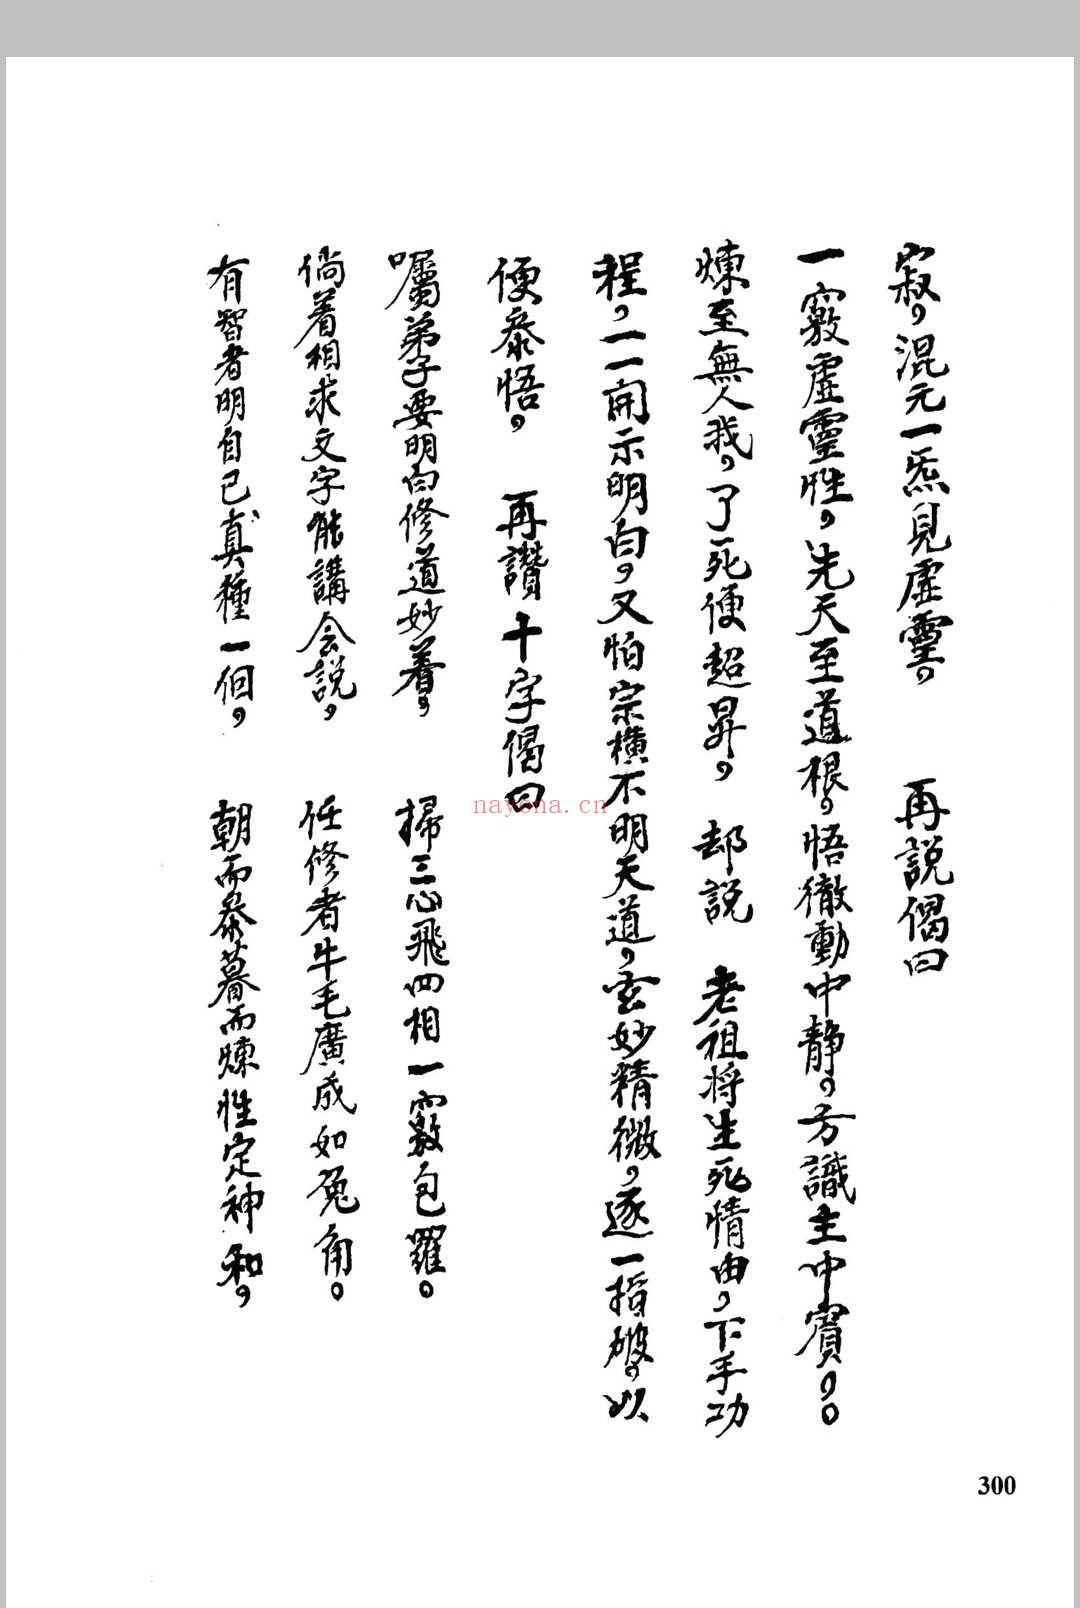 寂，混元一炁見虛靈。　再說偈曰
一竅虛靈性，先天至道根，悟徹動中静，方識主中賓，。
煉至無人我，了死便超昇，　却說　老祖将生死情由，下手功
程，一一開示明白，又怕宗横不明天道，玄妙精微，逐一指破，以
便叅悟，　再讚十字偈曰
囑弟子要明白修道妙着，　掃三心飛四相一竅包羅。
倘着相求文字能講会説，　任修者牛毛廣成如兔角。
有智者明自已真種一個，　朝而叅暮而煉性定神和，
nayona.cn
300